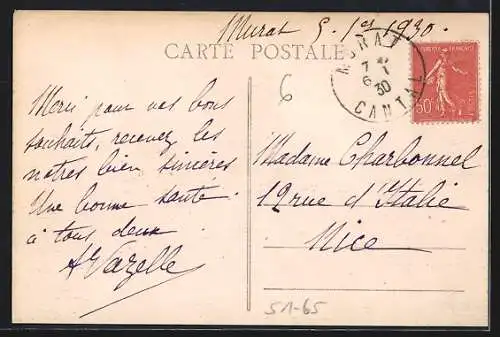 Murat 5. 1er 1930.
CARTE POSTALE
MURAT
7 1
6
30
CANTAL
50c
6
Merci pour vos bons
souhaits, recevez les
notres bien sincères
Une bonne santé
à tous deux
Madame Charbonnel
12 rue d'Italie
Nice
51-65